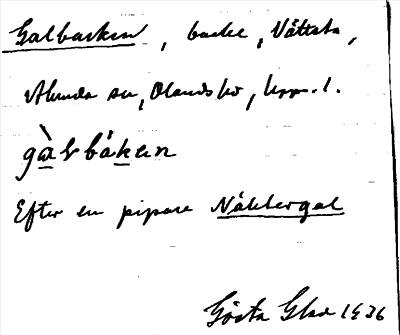 Galbacken, backe, Vättsta,
Alunda sn, Olands hd, Upps. l.
gàlbákɛn
Efter en pipare Näktergal
Gösta Glad 1936